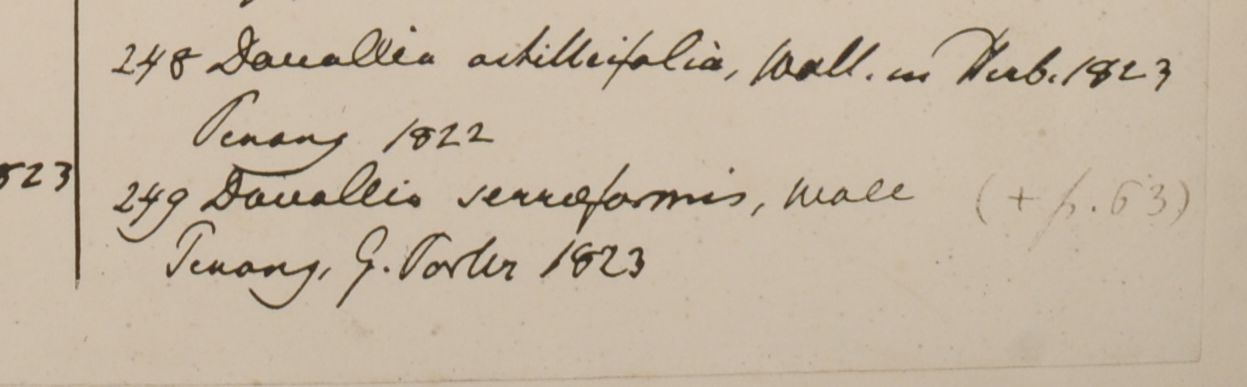 248 Davallia achilleifolia, Wall. in Herb. 1823
Penang 1822
823
249 Davallia serræformis, Wall (+ p. 63)
Penang, G. Porter 1823